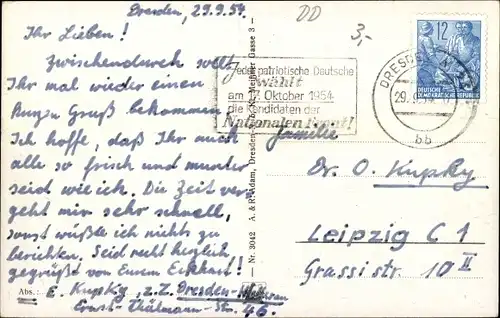 Dresden, 29.9.54.
DD
3,-
Ihr Lieben!
Zwischendurch sollt
Ihr mal wieder einen
kurzen Gruß bekommen.
Ich hoffe, daß Ihr auch
alle so frisch und munter
seid wie ich. Die Zeit ver-
geht mir sehr schnell,
sonst wüßte ich nichts zu
berichten. Seid recht herzlich
gegrüßt von Eurem Eckhart!
Abs.: E. Kupky, z.Z. Dresden-
Ernst-Thälmann-Str. 46.
Nr. 3042 A. & R. Adam, Dresden
Gasse 3
Jeder patriotische Deutsche
wählt
am 17. Oktober 1954
die Kandidaten der
Nationalen Front!
12
DEUTSCHE
DEMOKRATISCHE REPUBLIK
DRESDEN
29.9.54
bb
Familie
Dr. O. Kupky
Leipzig C 1
Grassistr. 10 II